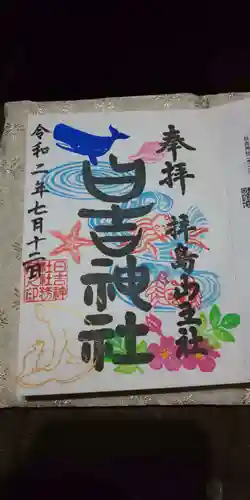 奉拝
拝島山王社
日吉神社
令和二年七月十二日